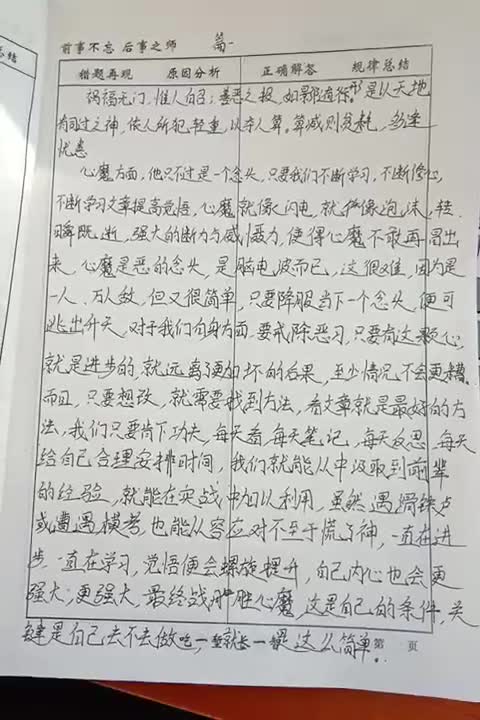 总结
前事不忘 后事之师 篇一
错题再现 原因分析 正确解答 规律总结
祸福无门,惟人自召;善恶之报,如影随行。是以天地
有司过之神,依人所犯轻重,以夺人算。算减则贫耗,多逢
忧患
心魔方面,他只不过是一个念头,只要我们不断学习,不断修心,
不断学习文章提高觉悟,心魔就像闪电,就像泡沫,转
瞬既逝,强大的断力与威慑力,使得心魔不敢再冒出
来,心魔是恶的念头,是脑电波而已,这很难,因为是
一人、万人敌,但又很简单,只要降服当下一个念头,便可
逃出升天,对于我们自身方面,要戒除恶习,只要有这颗心,
就是进步的,就远离了更加坏的后果,至少情况不会更糟。
而且,只要想改,就需要找到方法,看文章就是最好的方
法,我们只要肯下功夫,每天看,每天笔记,每天反思,每天
给自己合理安排时间,我们就能从中汲取到前辈
的经验,就能在实战中加以利用,虽然遇滑铁卢
或遭遇横祸,也能从容应对不至于慌了神,一直在进
步,一直在学习,觉悟便会螺旋提升,自己内心也会更
强大;更强大,最终战胜心魔,这是自己的条件,关
键是自己去不去做吃一堑就长一智是这么简单。
第 页